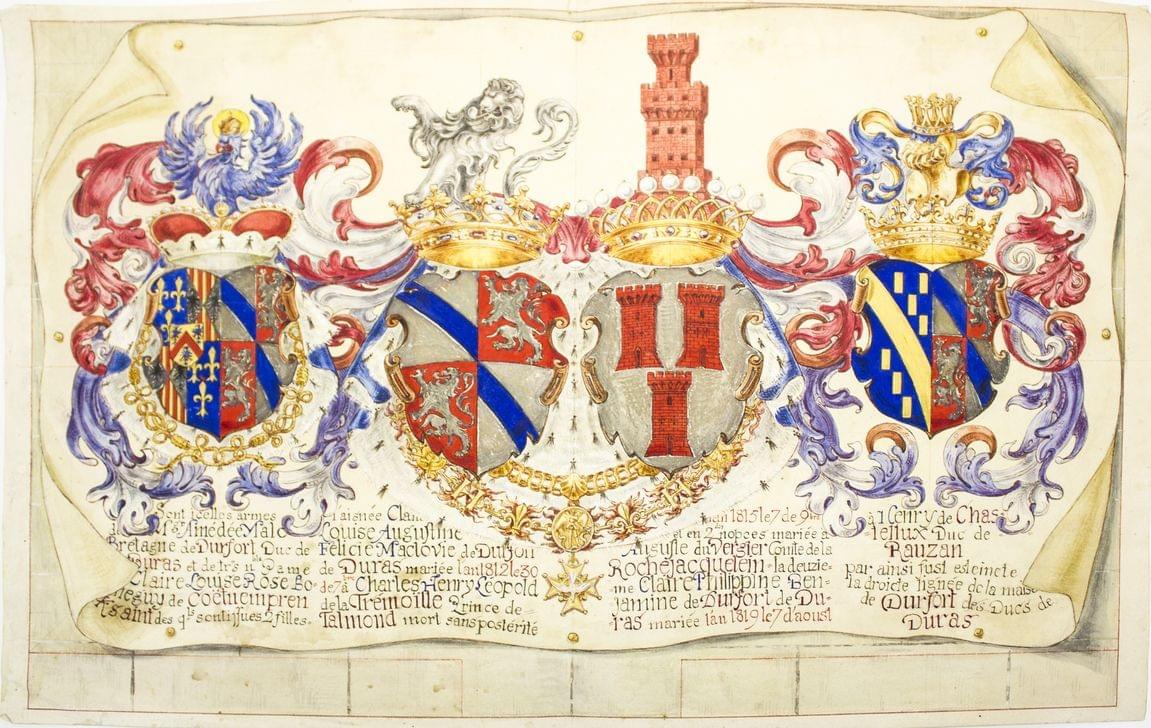 Sont icelles armes
Amédée Malo
Bretagne de Durfort Duc de
Duras et de Dame
Claire Louise Rose Bo-
neguy de Coëtnempren
Kersaint des q.ls sont issues 2 filles.
l'aisnée Clai
Louise Augustine
Félicie Maclovie de Durfort
de Duras mariée lan 1812 le 30
de 7.bre à Charles Henry Léopold
de la Trémoille Prince de
Talmond mort sans postérité
1815 le 7 de
et en nopces mariée à
Auguste du Vergier Comte de la
Rochejacquelein - la deuzie-
me Claire Philippine Ben-
jamine de Durfort de Du-
ras mariée lan 1819 le 7 d'aoust
à Henry de Chas-
tellux Duc de
Rauzan
par ainsi fust esteincte
la droicte lignée de la maison
de Durfort des Ducs de
Duras